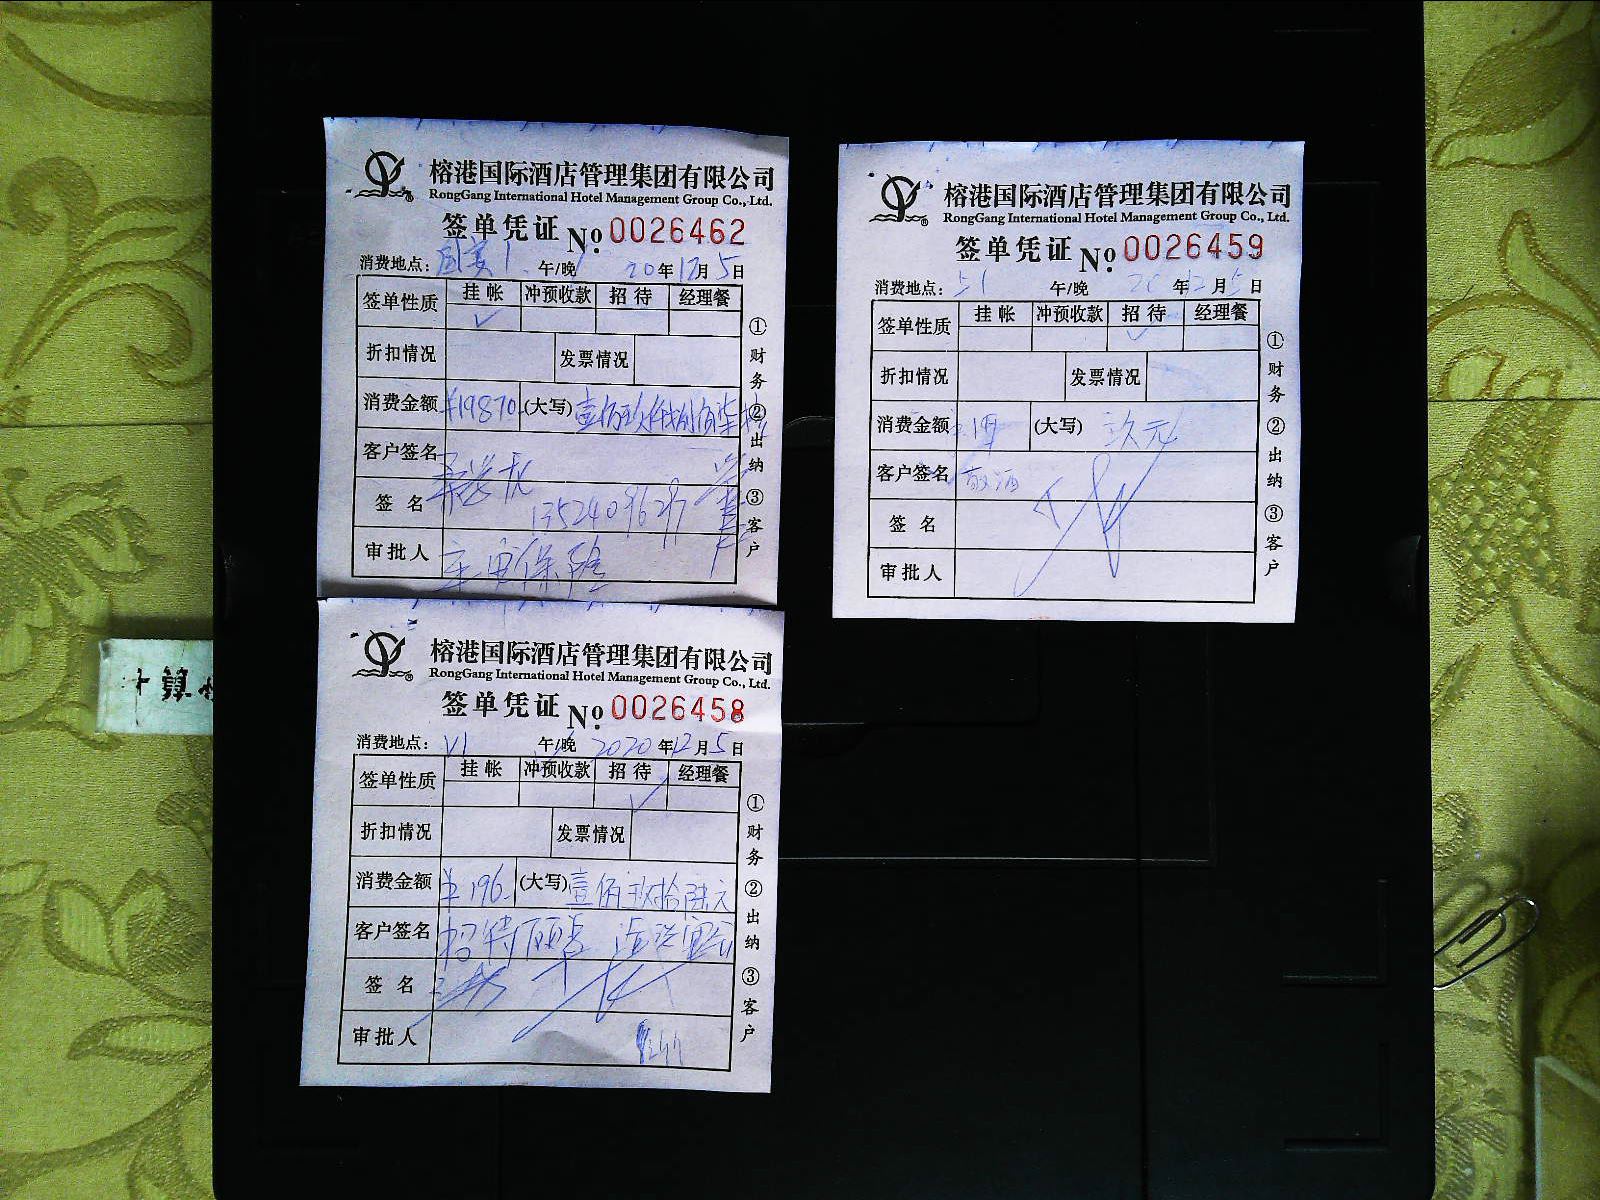 榕港国际酒店管理集团有限公司
RongGang International Hotel Management Group Co., Ltd.
签单凭证 No. 0026462
消费地点: 午/晚 20年12月5日
签单性质 挂帐 冲预收款 招待 经理餐
✓
折扣情况 发票情况
消费金额 ¥19870 (大写)
客户签名
签名 13524096297
审批人 保险
①财务 ②出纳 ③客户
榕港国际酒店管理集团有限公司
RongGang International Hotel Management Group Co., Ltd.
签单凭证 No. 0026459
消费地点: 51 午/晚 20年12月5日
签单性质 挂帐 冲预收款 招待 经理餐
✓
折扣情况 发票情况
消费金额 (大写)
客户签名 敬酒
签名
审批人
①财务 ②出纳 ③客户
榕港国际酒店管理集团有限公司
RongGang International Hotel Management Group Co., Ltd.
签单凭证 No. 0026458
消费地点: V1 午/晚 2020年12月5日
签单性质 挂帐 冲预收款 招待 经理餐
✓
折扣情况 发票情况
消费金额 ¥196 (大写) 壹佰玖拾陆元
客户签名 招待
签名
审批人
①财务 ②出纳 ③客户
计算